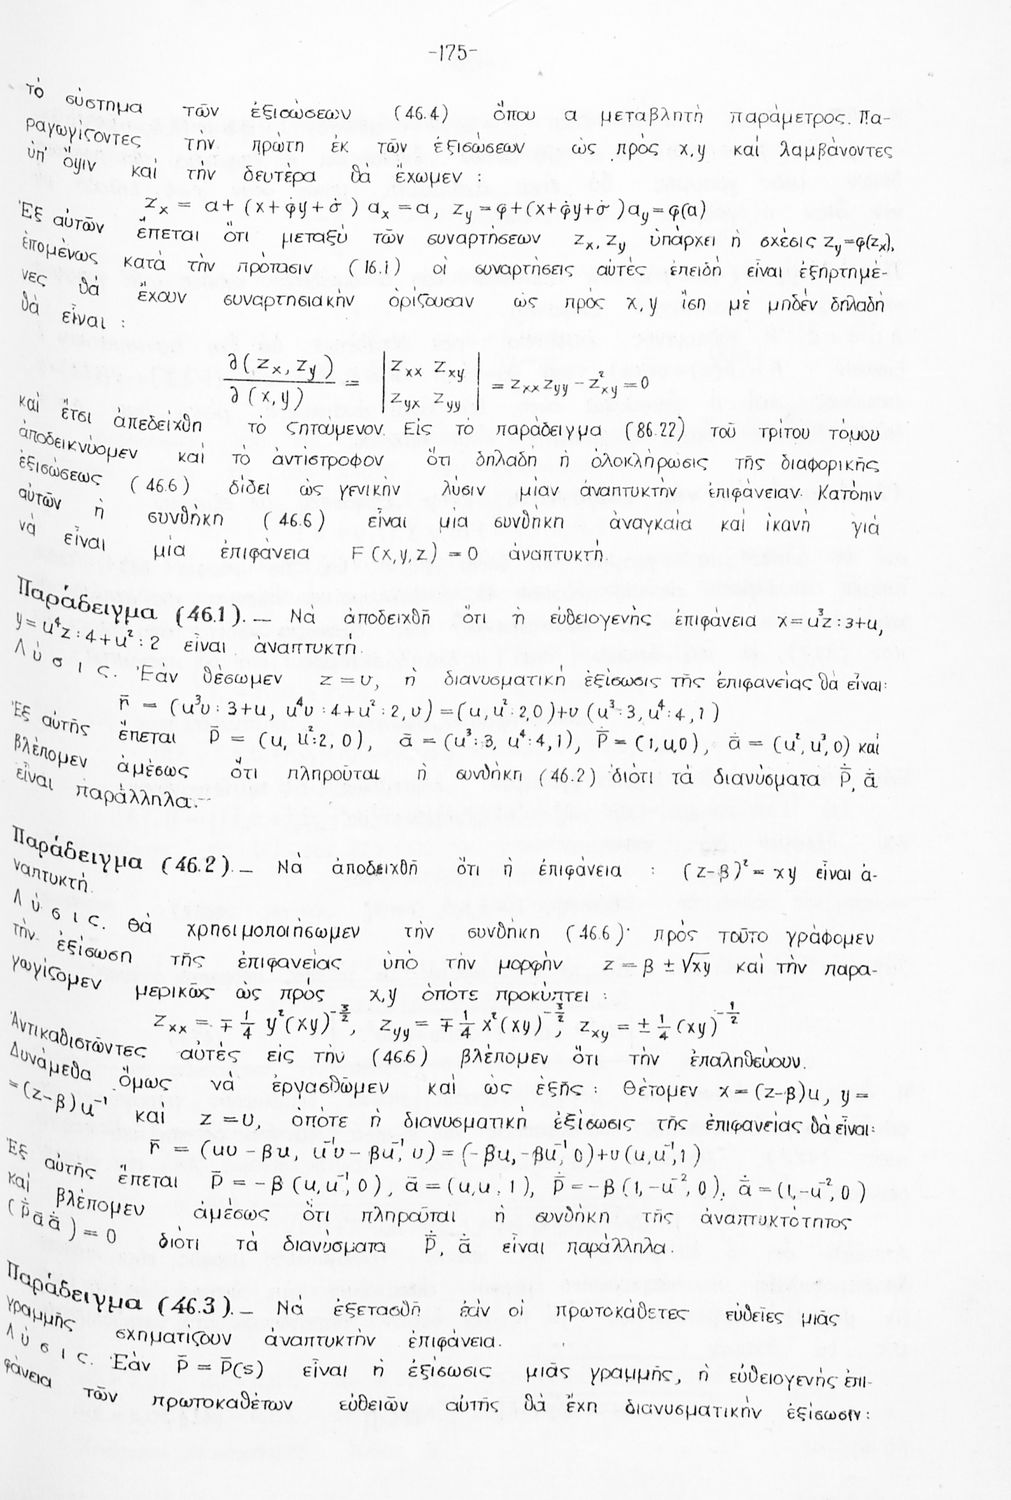 -175-
τὸ σύστημα τῶν ἐξισώσεων (46.4) ὅπου α μεταβλητὴ παράμετρος. Πα-
ραγωγίζοντες τὴν πρώτη ἐκ τῶν ἐξισώσεων ὡς πρὸς x,y καὶ λαμβάνοντες
ὑπ' ὄψιν καὶ τὴν δευτέρα θὰ ἔχωμεν :
z_x = α+ (x+φ̇y+σ̇) α_x = α, z_y = φ+(x+φ̇y+σ̇)α_y = φ(α)
Ἐξ αὐτῶν ἕπεται ὅτι μεταξὺ τῶν συναρτήσεων z_x, z_y ὑπάρχει ἡ σχέσις z_y=φ(z_x),
ἑπομένως κατὰ τὴν πρότασιν (16.1) οἱ συναρτήσεις αὐτές ἐπειδὴ εἶναι ἐξηρτημέ-
νες θὰ ἔχουν συναρτησιακὴν ὁρίζουσαν ὡς πρὸς x,y ἴση μὲ μηδέν δηλαδὴ
θὰ εἶναι :
∂(z_x, z_y) / ∂(x,y) = | z_xx z_xy ; z_yx z_yy | = z_xx z_yy − z²_xy = 0
καὶ ἔτσι ἀπεδείχθη τὸ ζητούμενον. Εἰς τὸ παράδειγμα (86.22) τοῦ τρίτου τόμου
ἀποδεικνύομεν καὶ τὸ ἀντίστροφον ὅτι δηλαδὴ ἡ ὁλοκλήρωσις τῆς διαφορικῆς
ἐξισώσεως (46.6) δίδει ὡς γενικὴν λύσιν μίαν ἀναπτυκτὴν ἐπιφάνειαν. Κατόπιν
αὐτῶν ἡ συνθήκη (46.6) εἶναι μία συνθήκη ἀναγκαία καὶ ἱκανὴ γιά
νὰ εἶναι μία ἐπιφάνεια F(x,y,z) = 0 ἀναπτυκτή.
Παράδειγμα (46.1). _ Νὰ ἀποδειχθῆ ὅτι ἡ εὐθειογενὴς ἐπιφάνεια x=u³z:3+u,
y=u⁴z:4+u²:2 εἶναι ἀναπτυκτή.
Λύσις. Ἐὰν θέσωμεν z=υ, ἡ διανυσματικὴ ἐξίσωσις τῆς ἐπιφανείας θὰ εἶναι:
r̄ = (u³υ:3+u, u⁴υ:4+u²:2, υ)=(u,u²:2,0)+υ(u³:3,u⁴:4,1)
Ἐξ αὐτῆς ἕπεται p̄ = (u, u²:2, 0), ᾱ = (u³:3, u⁴:4,1), ṗ̄ = (1,u,0), ᾱ̇ = (u²,u³,0) καὶ
βλέπομεν ἀμέσως ὅτι πληροῦται ἡ συνθήκη (46.2) διότι τὰ διανύσματα ṗ̄, ᾱ̇
εἶναι παράλληλα.
Παράδειγμα (46.2). _ Νὰ ἀποδειχθῆ ὅτι ἡ ἐπιφάνεια : (z-β)² = xy εἶναι ἀ-
ναπτυκτή.
Λύσις. Θὰ χρησιμοποιήσωμεν τὴν συνθήκη (46.6)· πρὸς τοῦτο γράφομεν
τὴν ἐξίσωση τῆς ἐπιφανείας ὑπὸ τὴν μορφὴν z = β ± √xy καὶ τὴν παρα-
γωγίζομεν μερικῶς ὡς πρὸς x,y ὁπότε προκύπτει :
z_xx = ∓ 1/4 y²(xy)^(-3/2), z_yy = ∓ 1/4 x²(xy)^(-3/2), z_xy = ± 1/4 (xy)^(-1/2)
Ἀντικαθιστῶντες αὐτὲς εἰς τὴν (46.6) βλέπομεν ὅτι τὴν ἐπαληθεύουν.
Δυνάμεθα ὅμως νὰ ἐργασθῶμεν καὶ ὡς ἐξῆς: Θέτομεν x=(z-β)u, y=
=(z-β)u⁻¹ καὶ z=υ, ὁπότε ἡ διανυσματικὴ ἐξίσωσις τῆς ἐπιφανείας θὰ εἶναι:
r̄ = (uυ-βu, u⁻¹υ-βu⁻¹, υ) = (-βu,-βu⁻¹,0)+υ(u,u⁻¹,1)
Ἐξ αὐτῆς ἕπεται p̄ = -β(u,u⁻¹,0), ᾱ = (u,u, 1), ṗ̄ = -β(1,-u⁻²,0), ᾱ̇ = (1,-u⁻²,0)
καὶ βλέπομεν ἀμέσως ὅτι πληροῦται ἡ συνθήκη τῆς ἀναπτυκτότητος
(ṗ̄ ᾱ ᾱ̇) = 0 διότι τὰ διανύσματα ṗ̄, ᾱ̇ εἶναι παράλληλα.
Παράδειγμα (46.3). _ Νὰ ἐξετασθῆ ἐὰν οἱ πρωτοκάθετες εὐθεῖες μιᾶς
γραμμῆς σχηματίζουν ἀναπτυκτὴν ἐπιφάνεια.
Λύσις. Ἐὰν p̄ = p̄(s) εἶναι ἡ ἐξίσωσις μιᾶς γραμμῆς, ἡ εὐθειογενὴς ἐπι-
φάνεια τῶν πρωτοκαθέτων εὐθειῶν αὐτῆς θὰ ἔχη διανυσματικὴν ἐξίσωσιν: